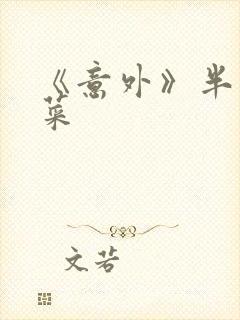 《意外》半
菜
文若